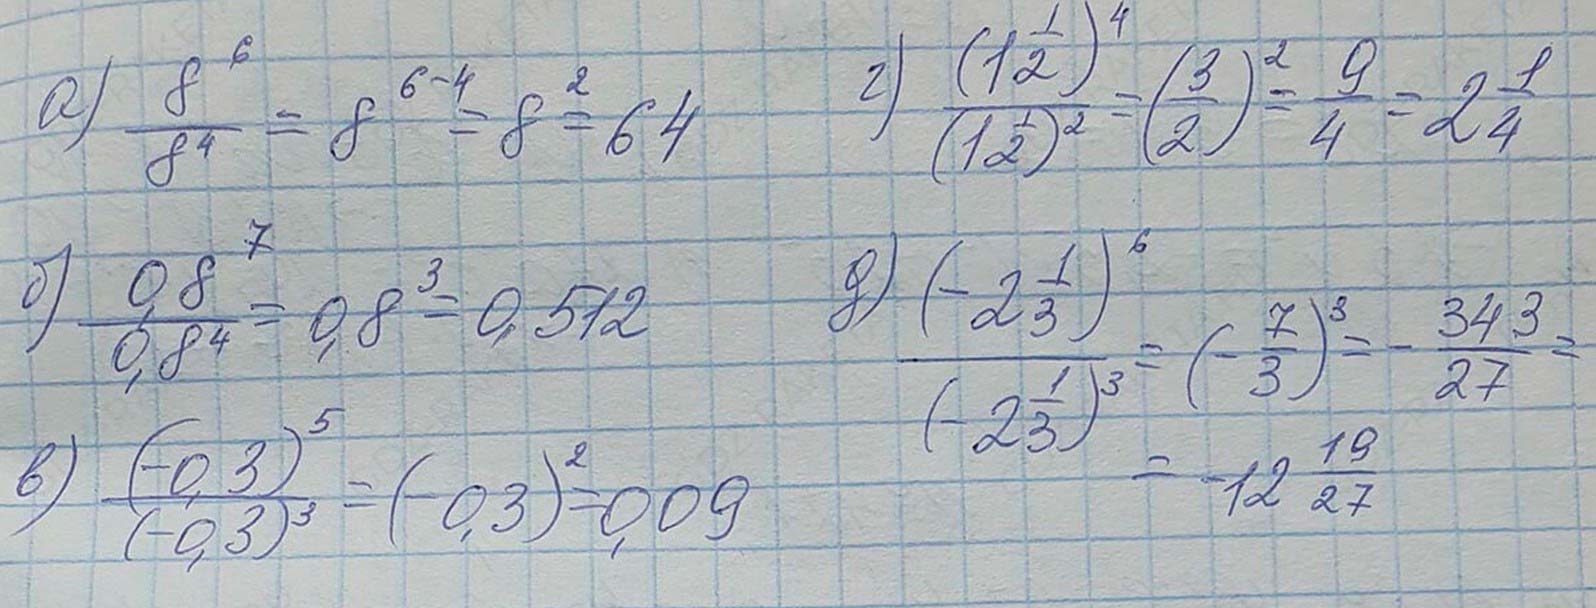 а) 8^6 / 8^4 = 8^(6-4) = 8^2 = 64
б) 0,8^7 / 0,8^4 = 0,8^3 = 0,512
в) (-0,3)^5 / (-0,3)^3 = (-0,3)^2 = 0,09
г) (1 1/2)^4 / (1 1/2)^2 = (3/2)^2 = 9/4 = 2 1/4
д) (-2 1/3)^6 / (-2 1/3)^3 = (-7/3)^3 = -343/27 =
= -12 19/27